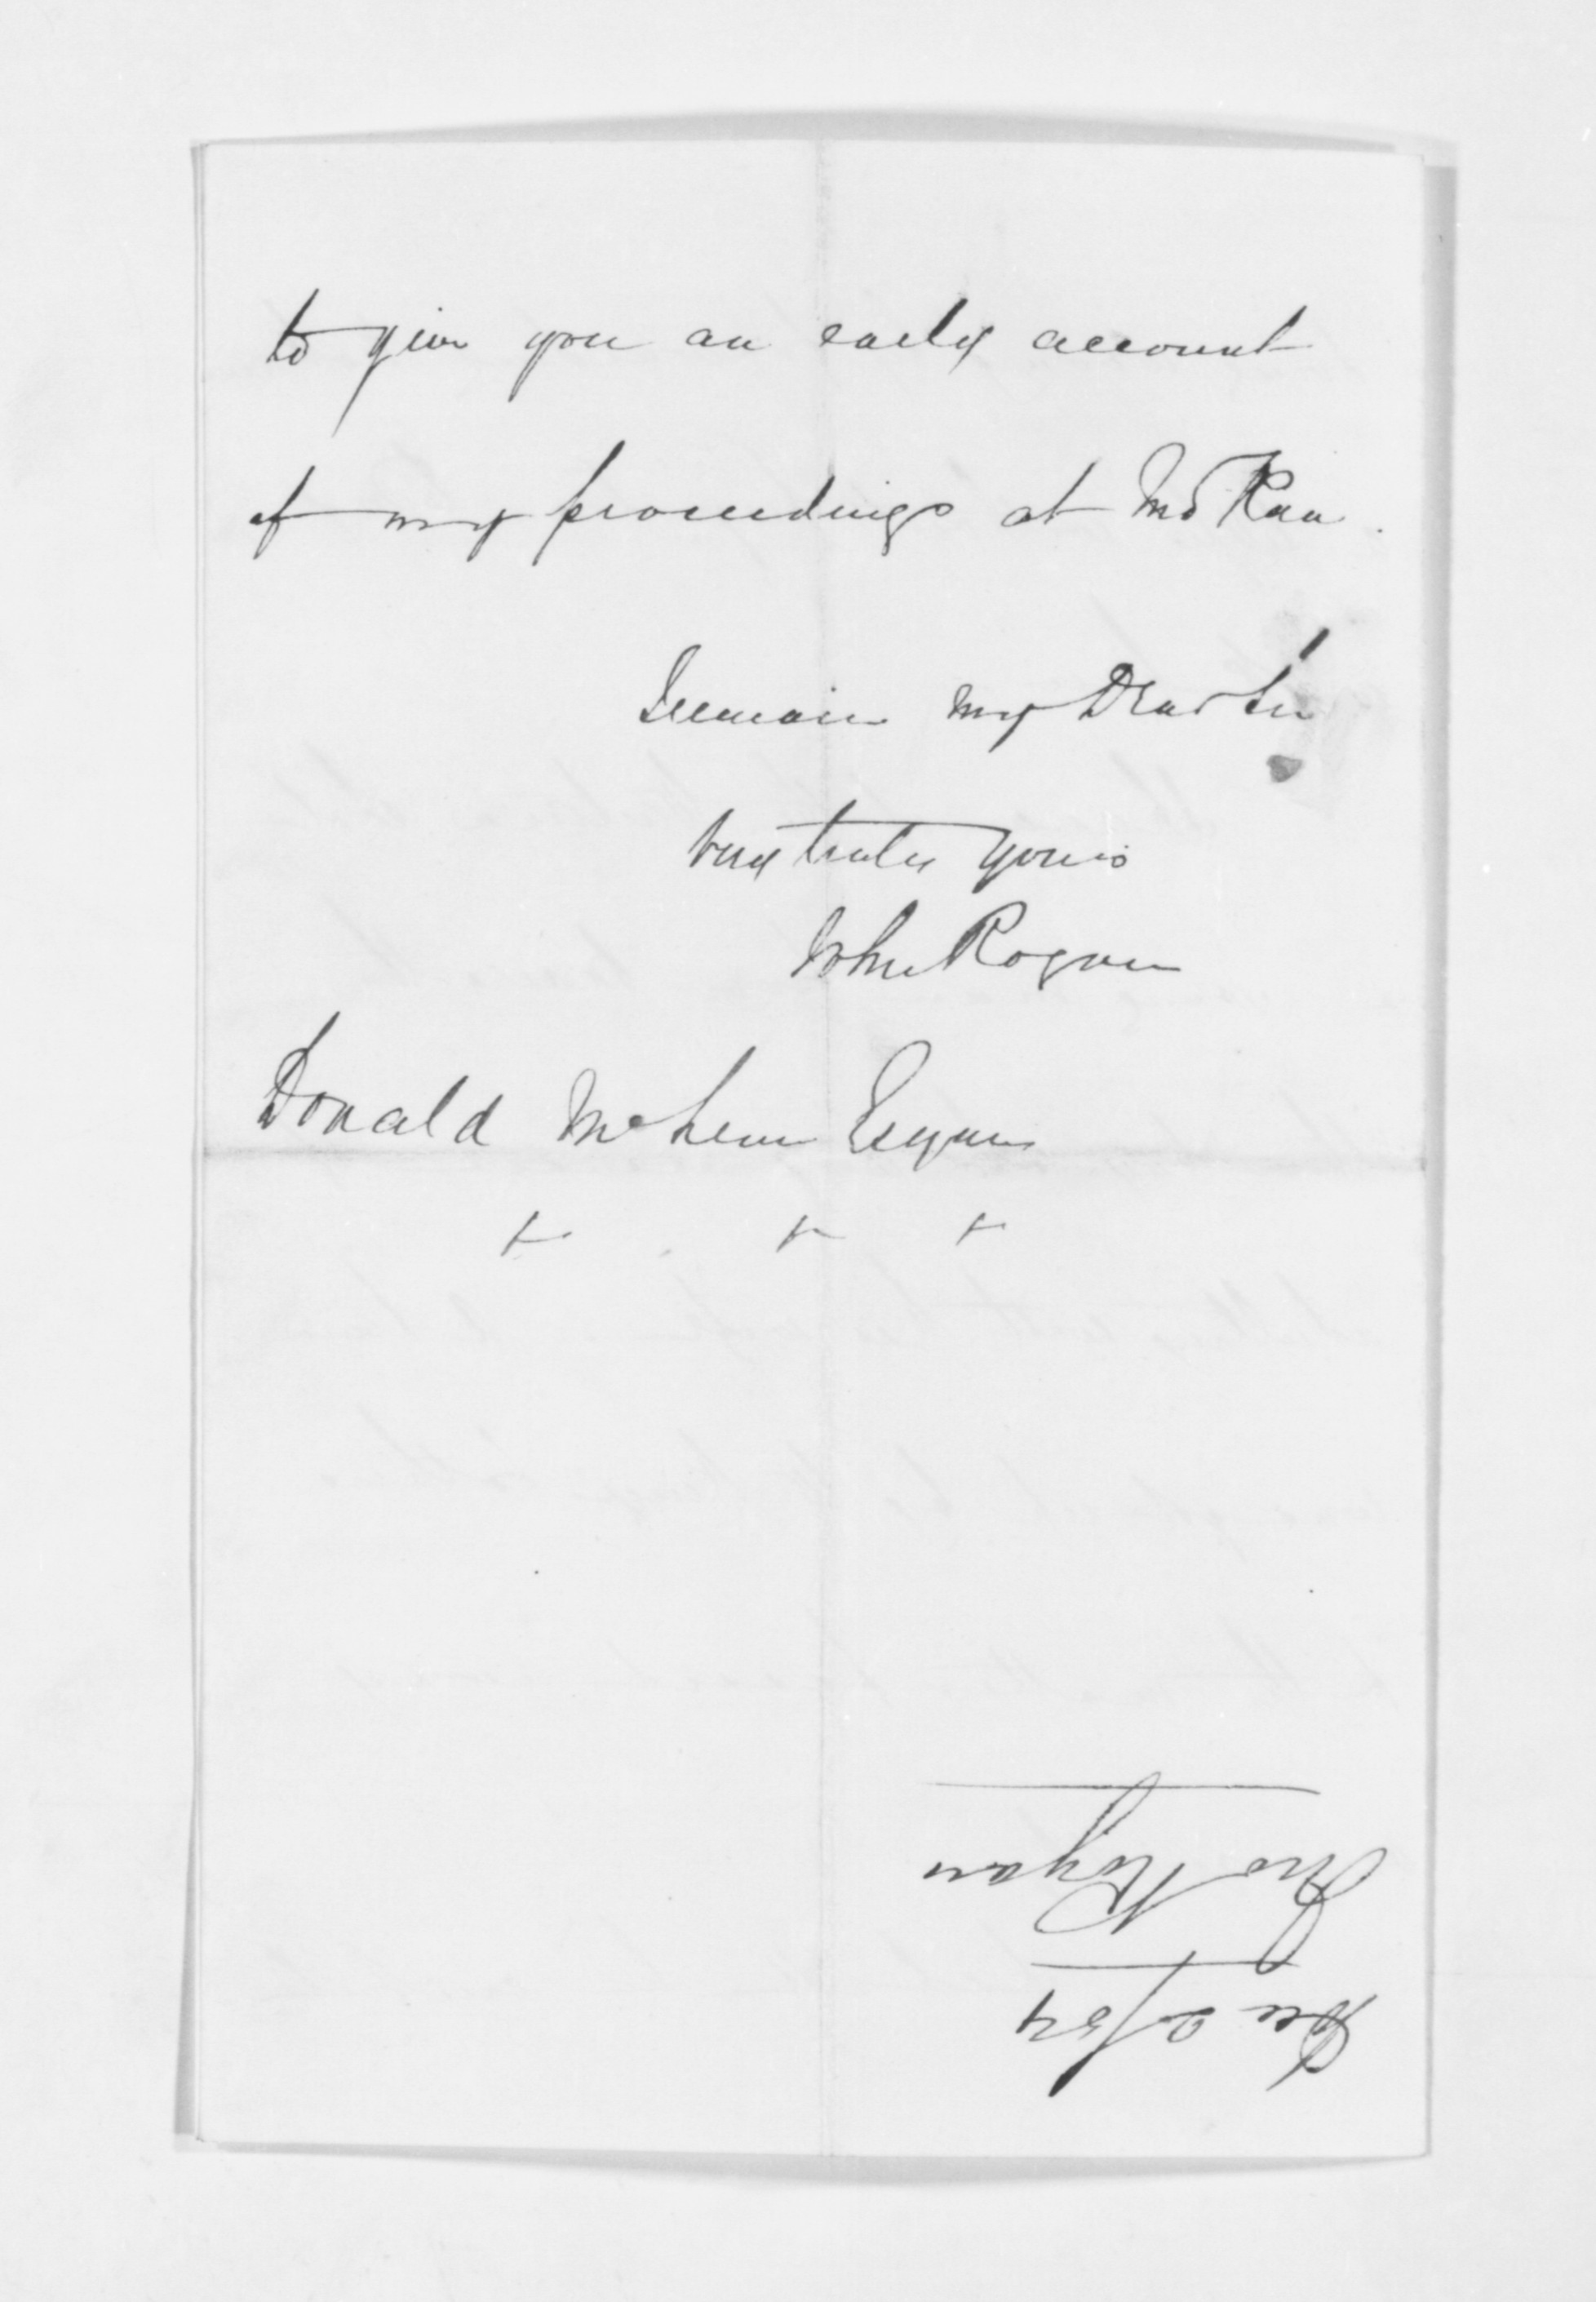 to give you an early account
of my proceedings at
I remain my Dear Sir
very truly yours
John Rogan
Donald McLean Esquire
+ + +
Jno Rogan
Dec 2/54